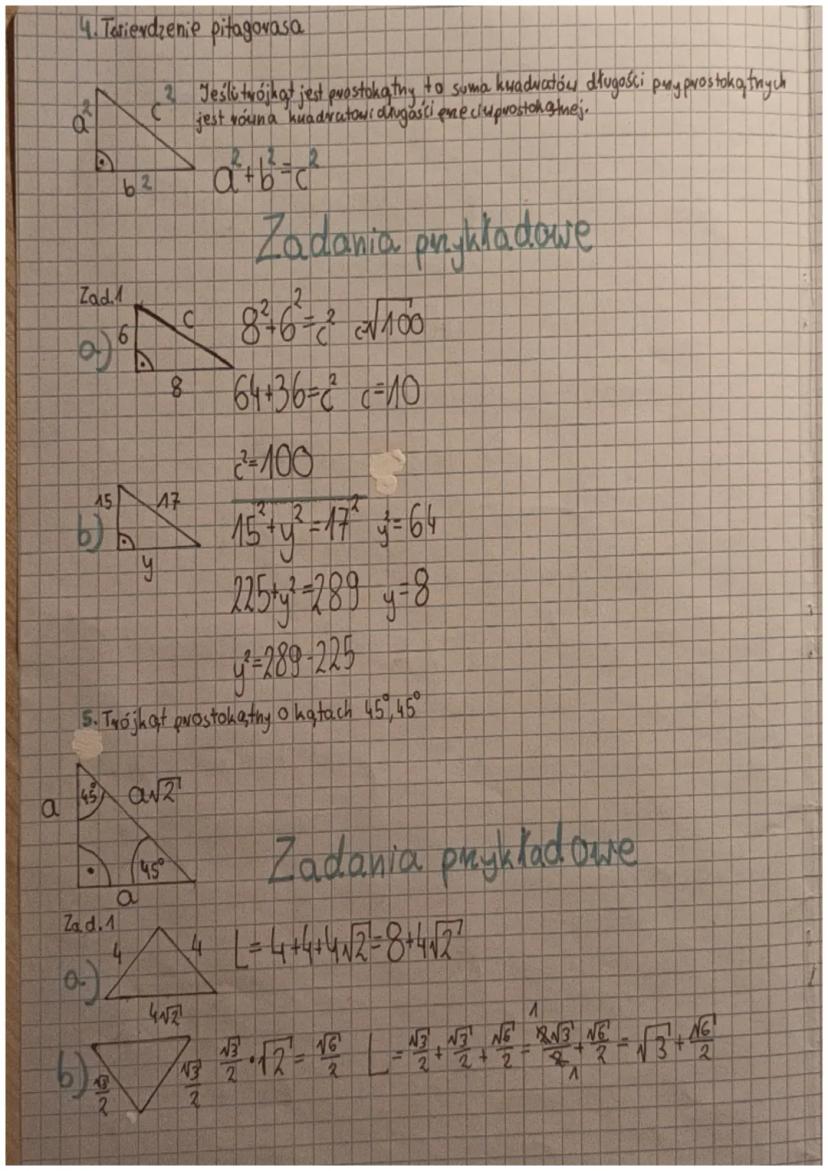 4. Twierdzenie pitagorasa
Jeśli trójkąt jest prostokątny to suma kwadratów długości przyprostokątnych
jest równa kwadratowi długości przeciwprostokątnej.
a² c² b²
a²+b²=c²
Zadania przykładowe
Zad.1
a) 6 c 8
8²+6²=c² c=√100
64+36=c² c=10
c²=100
b) 15 17 y
15²+y²=17² y²=64
225+y²=289 y=8
y²=289-225
5. Trójkąt prostokątny o kątach 45°,45°
a 45° a√2
45°
a
Zadania przykładowe
Zad.1
a) 4 4 4√2
L=4+4+4√2=8+4√2
b) √3/2 √3/2 √3/2·√2=√6/2 L=√3/2+√3/2+√6/2=2√3/2+√6/2=√3+√6/2
1
1